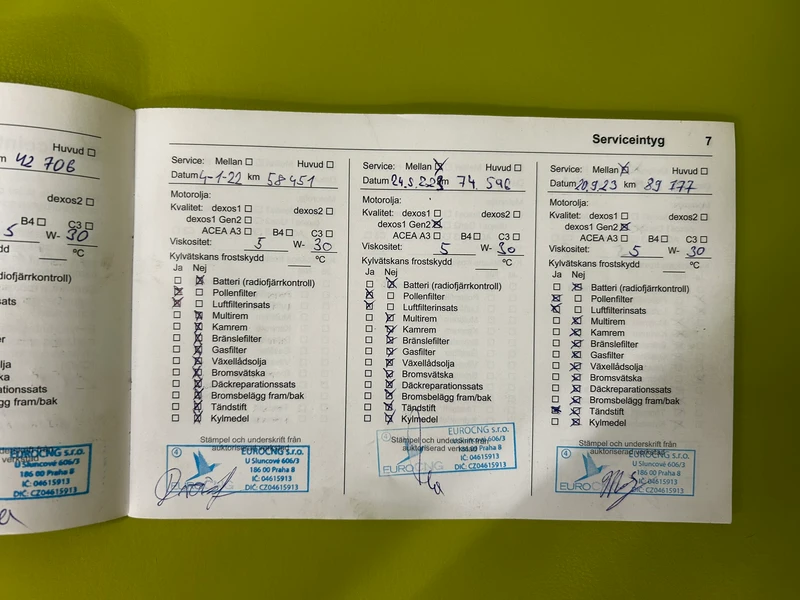 Serviceintyg 7
Huvud
42 706
dexos2
B4 C3
5 W- 30
ºC
Service: Mellan Huvud
Datum 4-1-22 km 58 451
Motorolja:
Kvalitet: dexos1 dexos2
dexos1 Gen2
ACEA A3 B4 C3
Viskositet: 5 W- 30
Kylvätskans frostskydd ºC
Ja Nej
Batteri (radiofjärrkontroll)
Pollenfilter
Luftfilterinsats
Multirem
Kamrem
Bränslefilter
Gasfilter
Växellådsolja
Bromsvätska
Däckreparationssats
Bromsbelägg fram/bak
Tändstift
Kylmedel
Stämpel och underskrift från
4
EUROCNG
EUROCNG s.r.o.
U Sluncové 606/3
186 00 Praha 8
IČ: 04615913
DIČ: CZ04615913
Service: Mellan Huvud
Datum km 74 596
Motorolja:
Kvalitet: dexos1 dexos2
dexos1 Gen2
ACEA A3 B4 C3
Viskositet: 5 W- 30
Kylvätskans frostskydd ºC
Ja Nej
Batteri (radiofjärrkontroll)
Pollenfilter
Luftfilterinsats
Multirem
Kamrem
Bränslefilter
Gasfilter
Växellådsolja
Bromsvätska
Däckreparationssats
Bromsbelägg fram/bak
Tändstift
Kylmedel
Stämpel och underskrift från
auktoriserad verkstad
4
EUROCNG
EUROCNG s.r.o.
U Sluncové 606/3
186 00 Praha 8
IČ: 04615913
DIČ: CZ04615913
Service: Mellan Huvud
Datum 20.9.23 km 89 177
Motorolja:
Kvalitet: dexos1 dexos2
dexos1 Gen2
ACEA A3 B4 C3
Viskositet: 5 W- 30
Kylvätskans frostskydd ºC
Ja Nej
Batteri (radiofjärrkontroll)
Pollenfilter
Luftfilterinsats
Multirem
Kamrem
Bränslefilter
Gasfilter
Växellådsolja
Bromsvätska
Däckreparationssats
Bromsbelägg fram/bak
Tändstift
Kylmedel
Stämpel och underskrift från
4
EUROCNG
EUROCNG s.r.o.
U Sluncové 606/3
186 00 Praha 8
IČ: 04615913
DIČ: CZ04615913